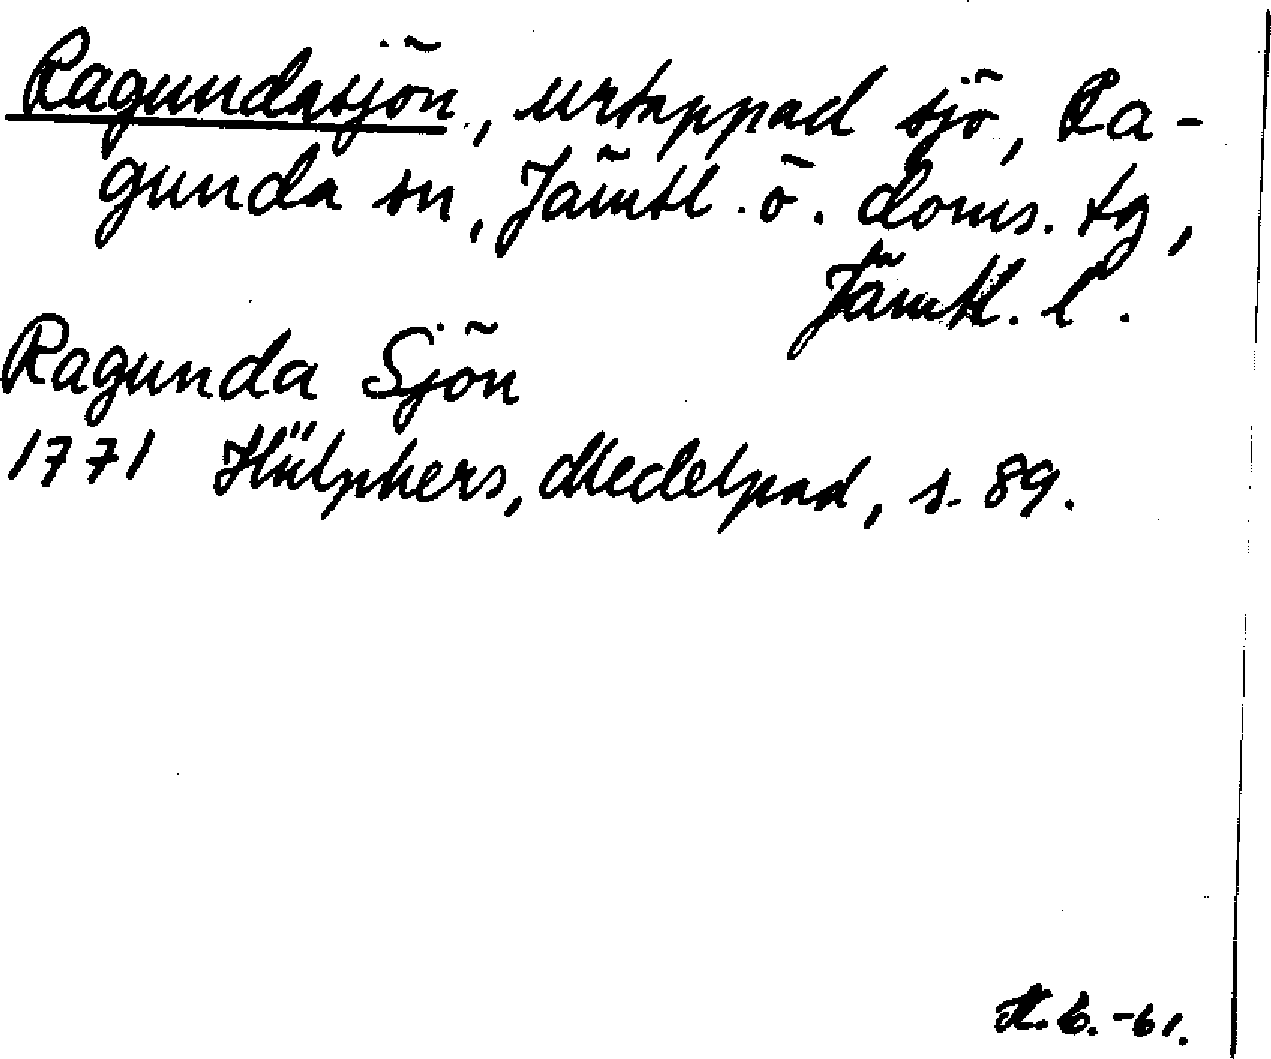 Ragundasjön, urtappad sjö, Ra-
gunda sn, Jämtl. ö. doms. tg,
Jämtl. l.
Ragunda Sjön
1771 Hülphers, Medelpad, s. 89.
H. B. -61.